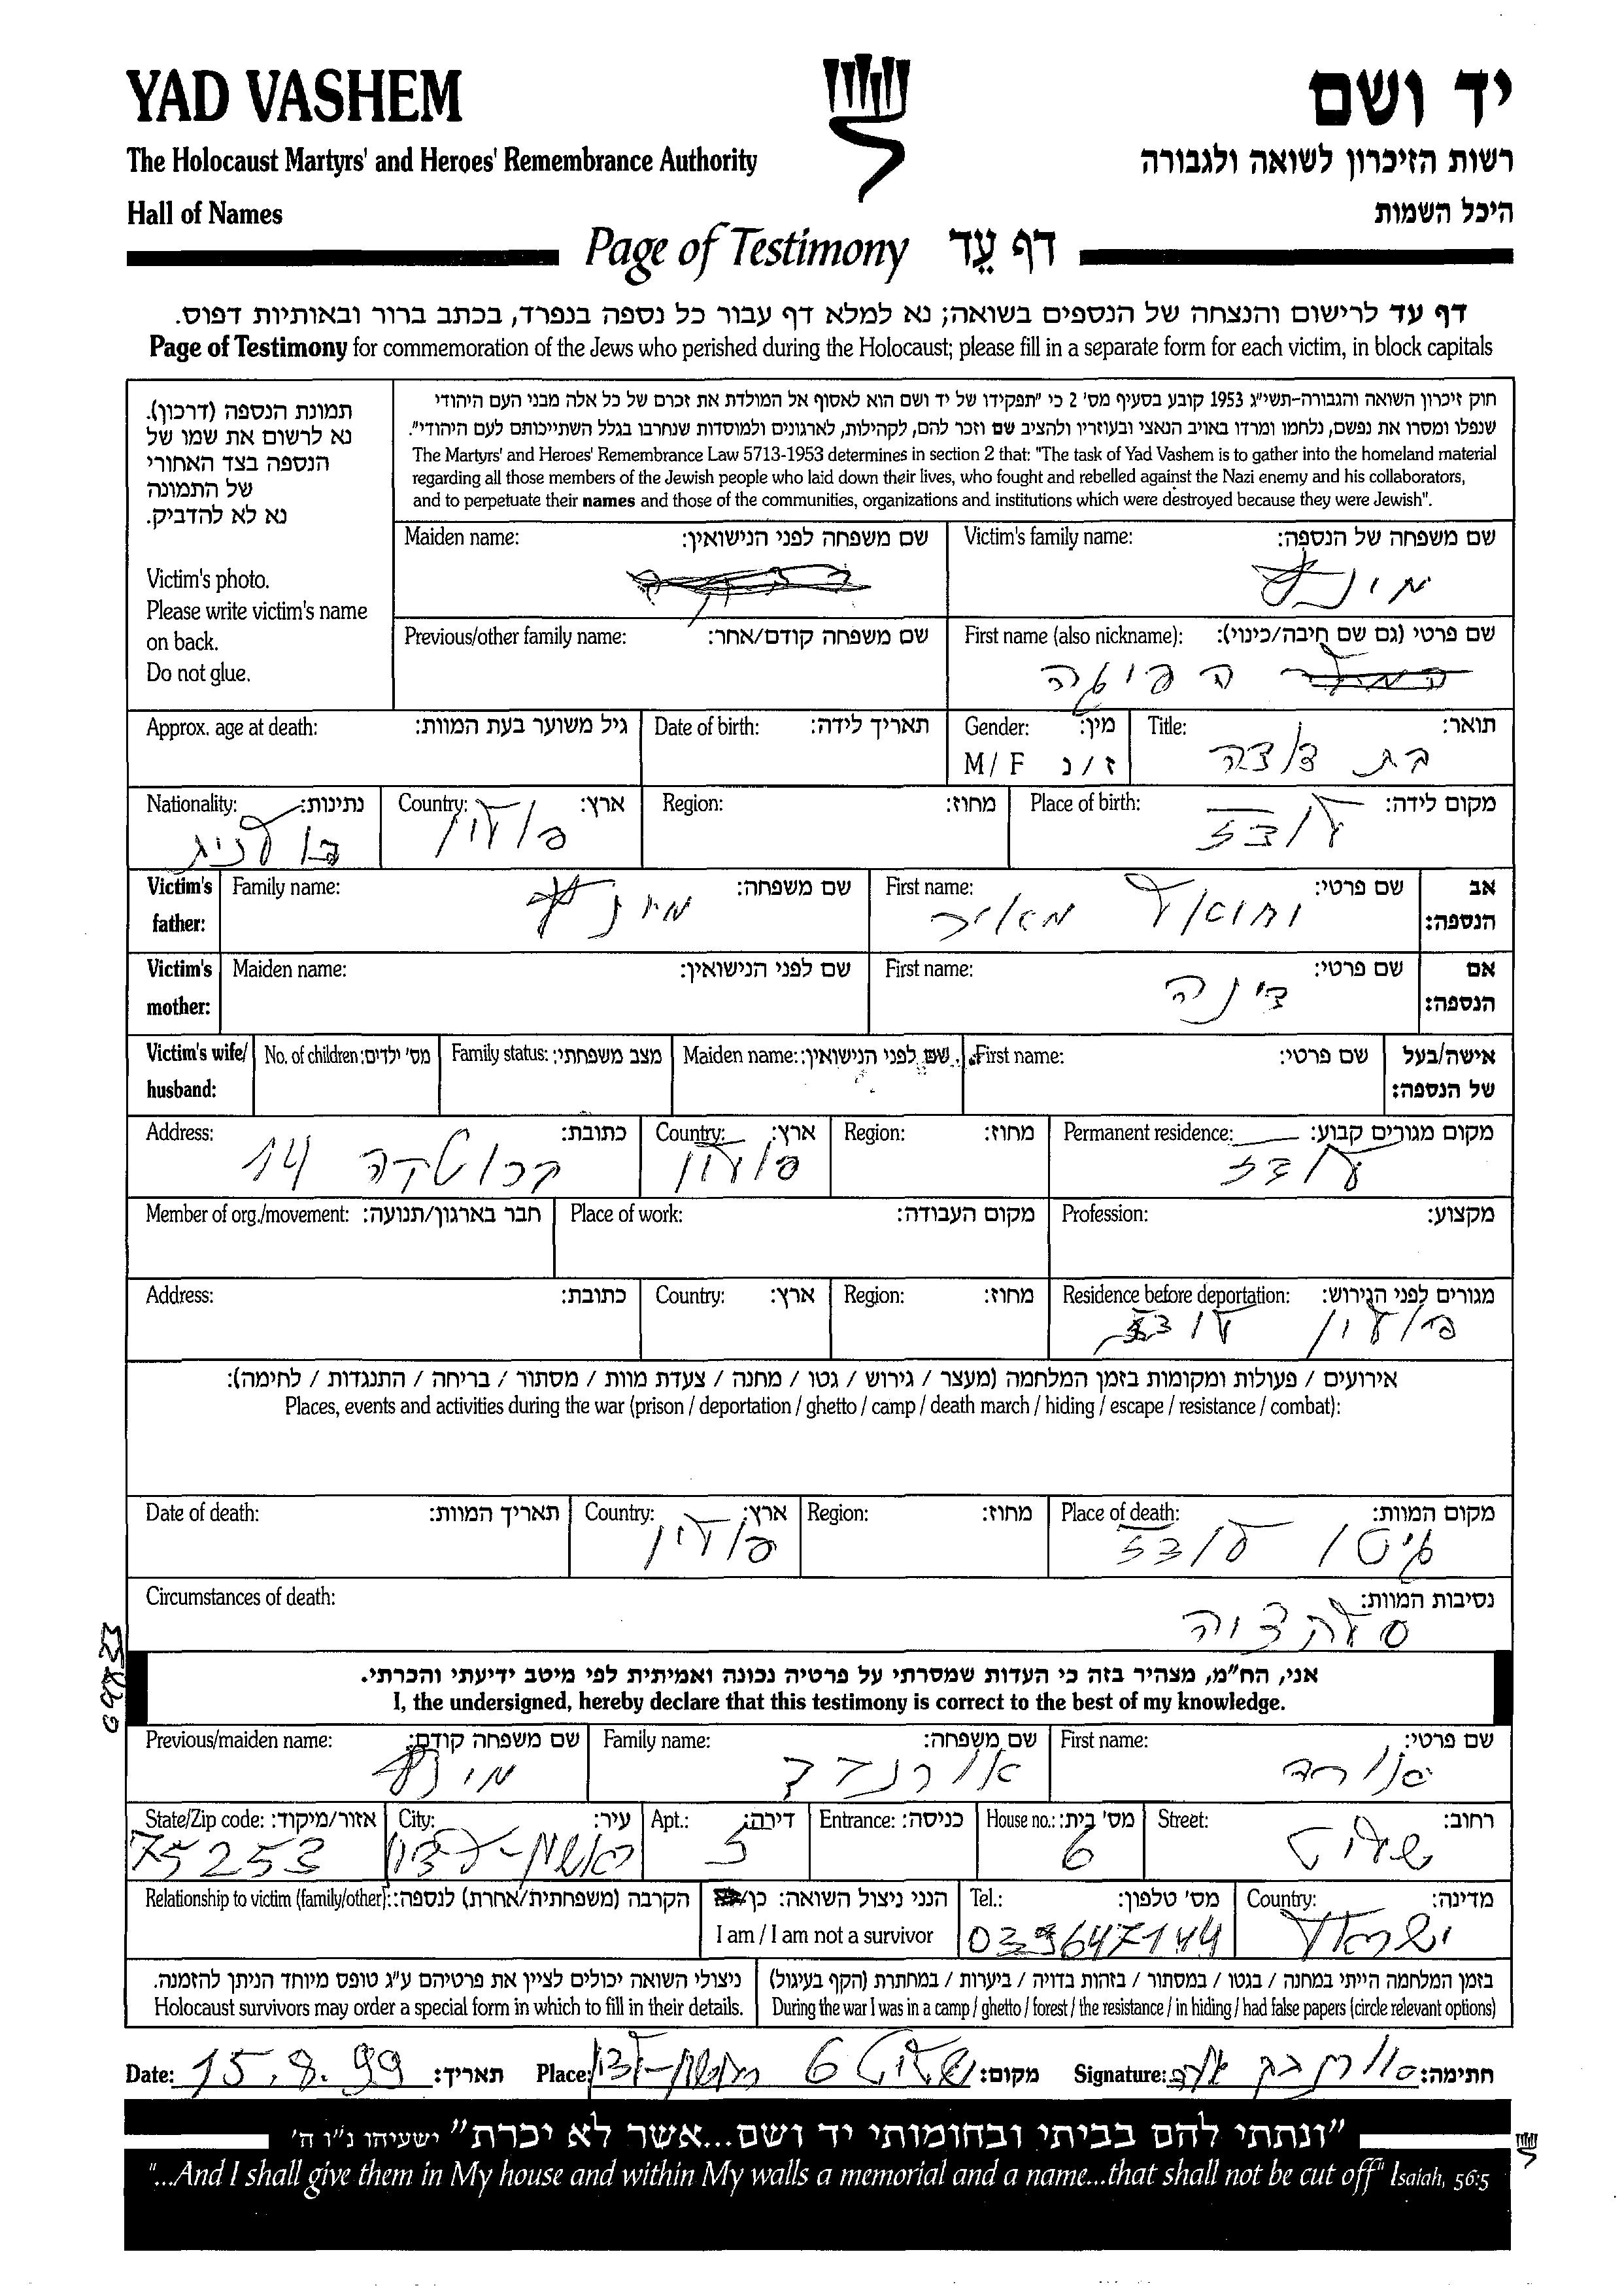 YAD VASHEM
יד ושם
The Holocaust Martyrs' and Heroes' Remembrance Authority
רשות הזיכרון לשואה ולגבורה
Hall of Names
היכל השמות
Page of Testimony דף עֵד
דף עד לרישום והנצחה של הנספים בשואה; נא למלא דף עבור כל נספה בנפרד, בכתב ברור ובאותיות דפוס.
Page of Testimony for commemoration of the Jews who perished during the Holocaust; please fill in a separate form for each victim, in block capitals
תמונת הנספה (דרכון).
נא לרשום את שמו של
הנספה בצד האחורי
של התמונה
נא לא להדביק.
Victim's photo.
Please write victim's name
on back.
Do not glue.
חוק זיכרון השואה והגבורה-תשי"ג 1953 קובע בסעיף מס' 2 כי "תפקידו של יד ושם הוא לאסוף אל המולדת את זכרם של כל אלה מבני העם היהודי
שנפלו ומסרו את נפשם, נלחמו ומרדו באויב הנאצי ובעוזריו ולהציב שם וזכר להם, לקהילות, לארגונים ולמוסדות שנחרבו בגלל השתייכותם לעם היהודי".
The Martyrs' and Heroes' Remembrance Law 5713-1953 determines in section 2 that: "The task of Yad Vashem is to gather into the homeland material
regarding all those members of the Jewish people who laid down their lives, who fought and rebelled against the Nazi enemy and his collaborators,
and to perpetuate their names and those of the communities, organizations and institutions which were destroyed because they were Jewish".
Maiden name: שם משפחה לפני הנישואין:
Victim's family name: שם משפחה של הנספה:
Previous/other family name: שם משפחה קודם/אחר:
First name (also nickname): שם פרטי (גם שם חיבה/כינוי):
Approx. age at death: גיל משוער בעת המוות:
Date of birth: תאריך לידה:
Gender: מין:
M / F ז / נ
Title: תואר:
בת דודה
Nationality: נתינות:
פולנית
Country: ארץ:
פולין
Region: מחוז:
Place of birth: מקום לידה:
לודז
Victim's father: Family name: שם משפחה:
First name: שם פרטי: אב הנספה:
מאיר
Victim's mother: Maiden name: שם לפני הנישואין:
First name: שם פרטי: אם הנספה:
דינה
Victim's wife/ husband: No. of children: מס' ילדים:
Family status: מצב משפחתי:
Maiden name: שם לפני הנישואין:
First name: שם פרטי: אישה/בעל של הנספה:
Address: כתובת:
14
Country: ארץ:
פולין
Region: מחוז:
Permanent residence: מקום מגורים קבוע:
לודז
Member of org./movement: חבר בארגון/תנועה:
Place of work: מקום העבודה:
Profession: מקצוע:
Address: כתובת:
Country: ארץ:
Region: מחוז:
Residence before deportation: מגורים לפני הגירוש:
פולין לודז
אירועים / פעולות ומקומות בזמן המלחמה (מעצר / גירוש / גטו / מחנה / צעדת מוות / מסתור / בריחה / התנגדות / לחימה):
Places, events and activities during the war (prison / deportation / ghetto / camp / death march / hiding / escape / resistance / combat):
Date of death: תאריך המוות:
Country: ארץ:
פולין
Region: מחוז:
Place of death: מקום המוות:
גיטו לודז
Circumstances of death: נסיבות המוות:
סלקציה
אני, הח"מ, מצהיר בזה כי העדות שמסרתי על פרטיה נכונה ואמיתית לפי מיטב ידיעתי והכרתי.
I, the undersigned, hereby declare that this testimony is correct to the best of my knowledge.
Previous/maiden name: שם משפחה קודם:
Family name: שם משפחה:
First name: שם פרטי:
State/Zip code: אזור/מיקוד:
75253
City: עיר:
ראשון-לציון
Apt.: דירה:
5
Entrance: כניסה:
House no.: מס' בית:
6
Street: רחוב:
Relationship to victim (family/other): הקרבה (משפחתית/אחרת) לנספה:
הנני ניצול השואה: כן/
I am / I am not a survivor
Tel.: מס' טלפון:
039647144
Country: מדינה:
ישראל
ניצולי השואה יכולים לציין את פרטיהם ע"ג טופס מיוחד הניתן להזמנה.
Holocaust survivors may order a special form in which to fill in their details.
בזמן המלחמה הייתי במחנה / בגטו / במסתור / בזהות בדויה / ביערות / במחתרת (הקף בעיגול)
During the war I was in a camp / ghetto / forest / the resistance / in hiding / had false papers (circle relevant options)
Date: 15.8.99 תאריך: Place: 6 ראשון-לציון מקום: Signature: חתימה:
"ונתתי להם בביתי ובחומותי יד ושם...אשר לא יכרת" ישעיהו נ"ו ה'
"...And I shall give them in My house and within My walls a memorial and a name...that shall not be cut off" Isaiah, 56:5